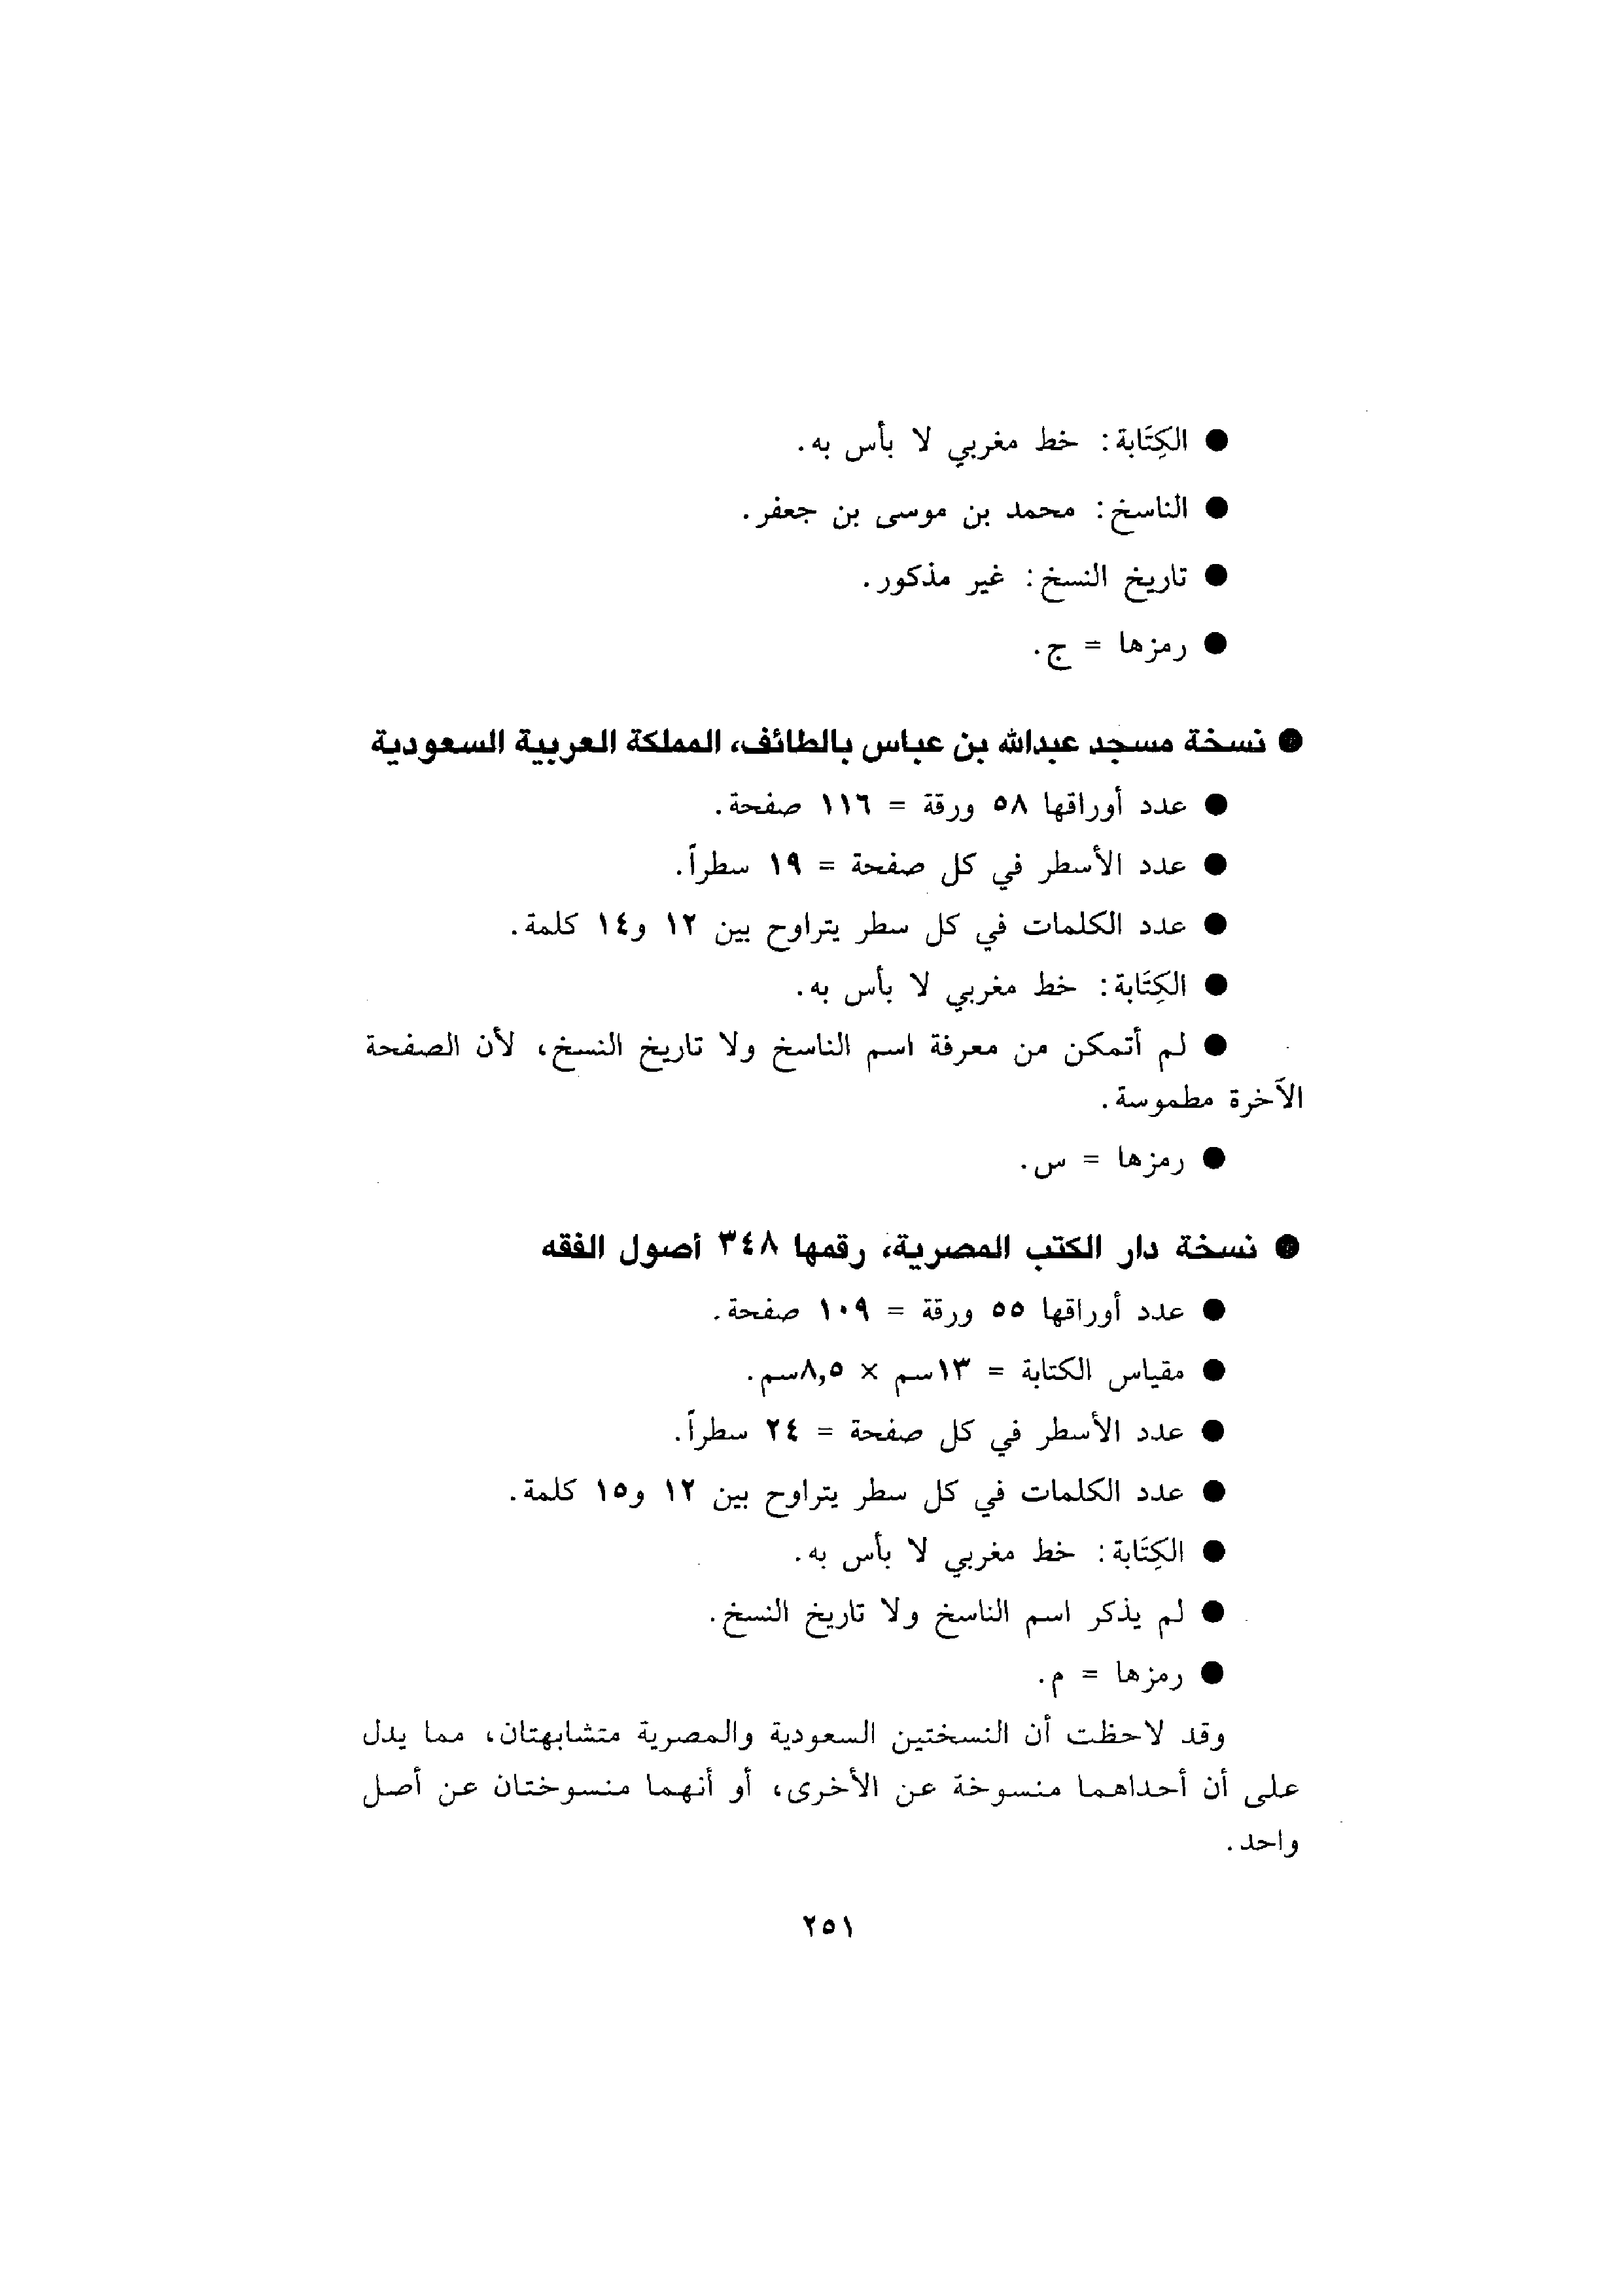 ● الكِتَابة: خط مغربي لا بأس به.
● الناسخ: محمد بن موسى بن جعفر.
● تاريخ النسخ: غير مذكور.
● رمزها = ج.
● نسخة مسجد عبدالله بن عباس بالطائف، المملكة العربية السعودية
● عدد أوراقها ٥٨ ورقة = ١١٦ صفحة.
● عدد الأسطر في كل صفحة = ١٩ سطراً.
● عدد الكلمات في كل سطر يتراوح بين ١٢ و١٤ كلمة.
● الكِتَابة: خط مغربي لا بأس به.
● لم أتمكن من معرفة اسم الناسخ ولا تاريخ النسخ، لأن الصفحة
الآخرة مطموسة.
● رمزها = س.
● نسخة دار الكتب المصرية، رقمها ٣٤٨ أصول الفقه
● عدد أوراقها ٥٥ ورقة = ١٠٩ صفحة.
● مقياس الكتابة = ١٣سم × ٨,٥سم.
● عدد الأسطر في كل صفحة = ٢٤ سطراً.
● عدد الكلمات في كل سطر يتراوح بين ١٢ و١٥ كلمة.
● الكِتَابة: خط مغربي لا بأس به.
● لم يذكر اسم الناسخ ولا تاريخ النسخ.
● رمزها = م.
وقد لاحظت أن النسختين السعودية والمصرية متشابهتان، مما يدل
على أن أحداهما منسوخة عن الأخرى، أو أنهما منسوختان عن أصل
واحد.
٢٥١